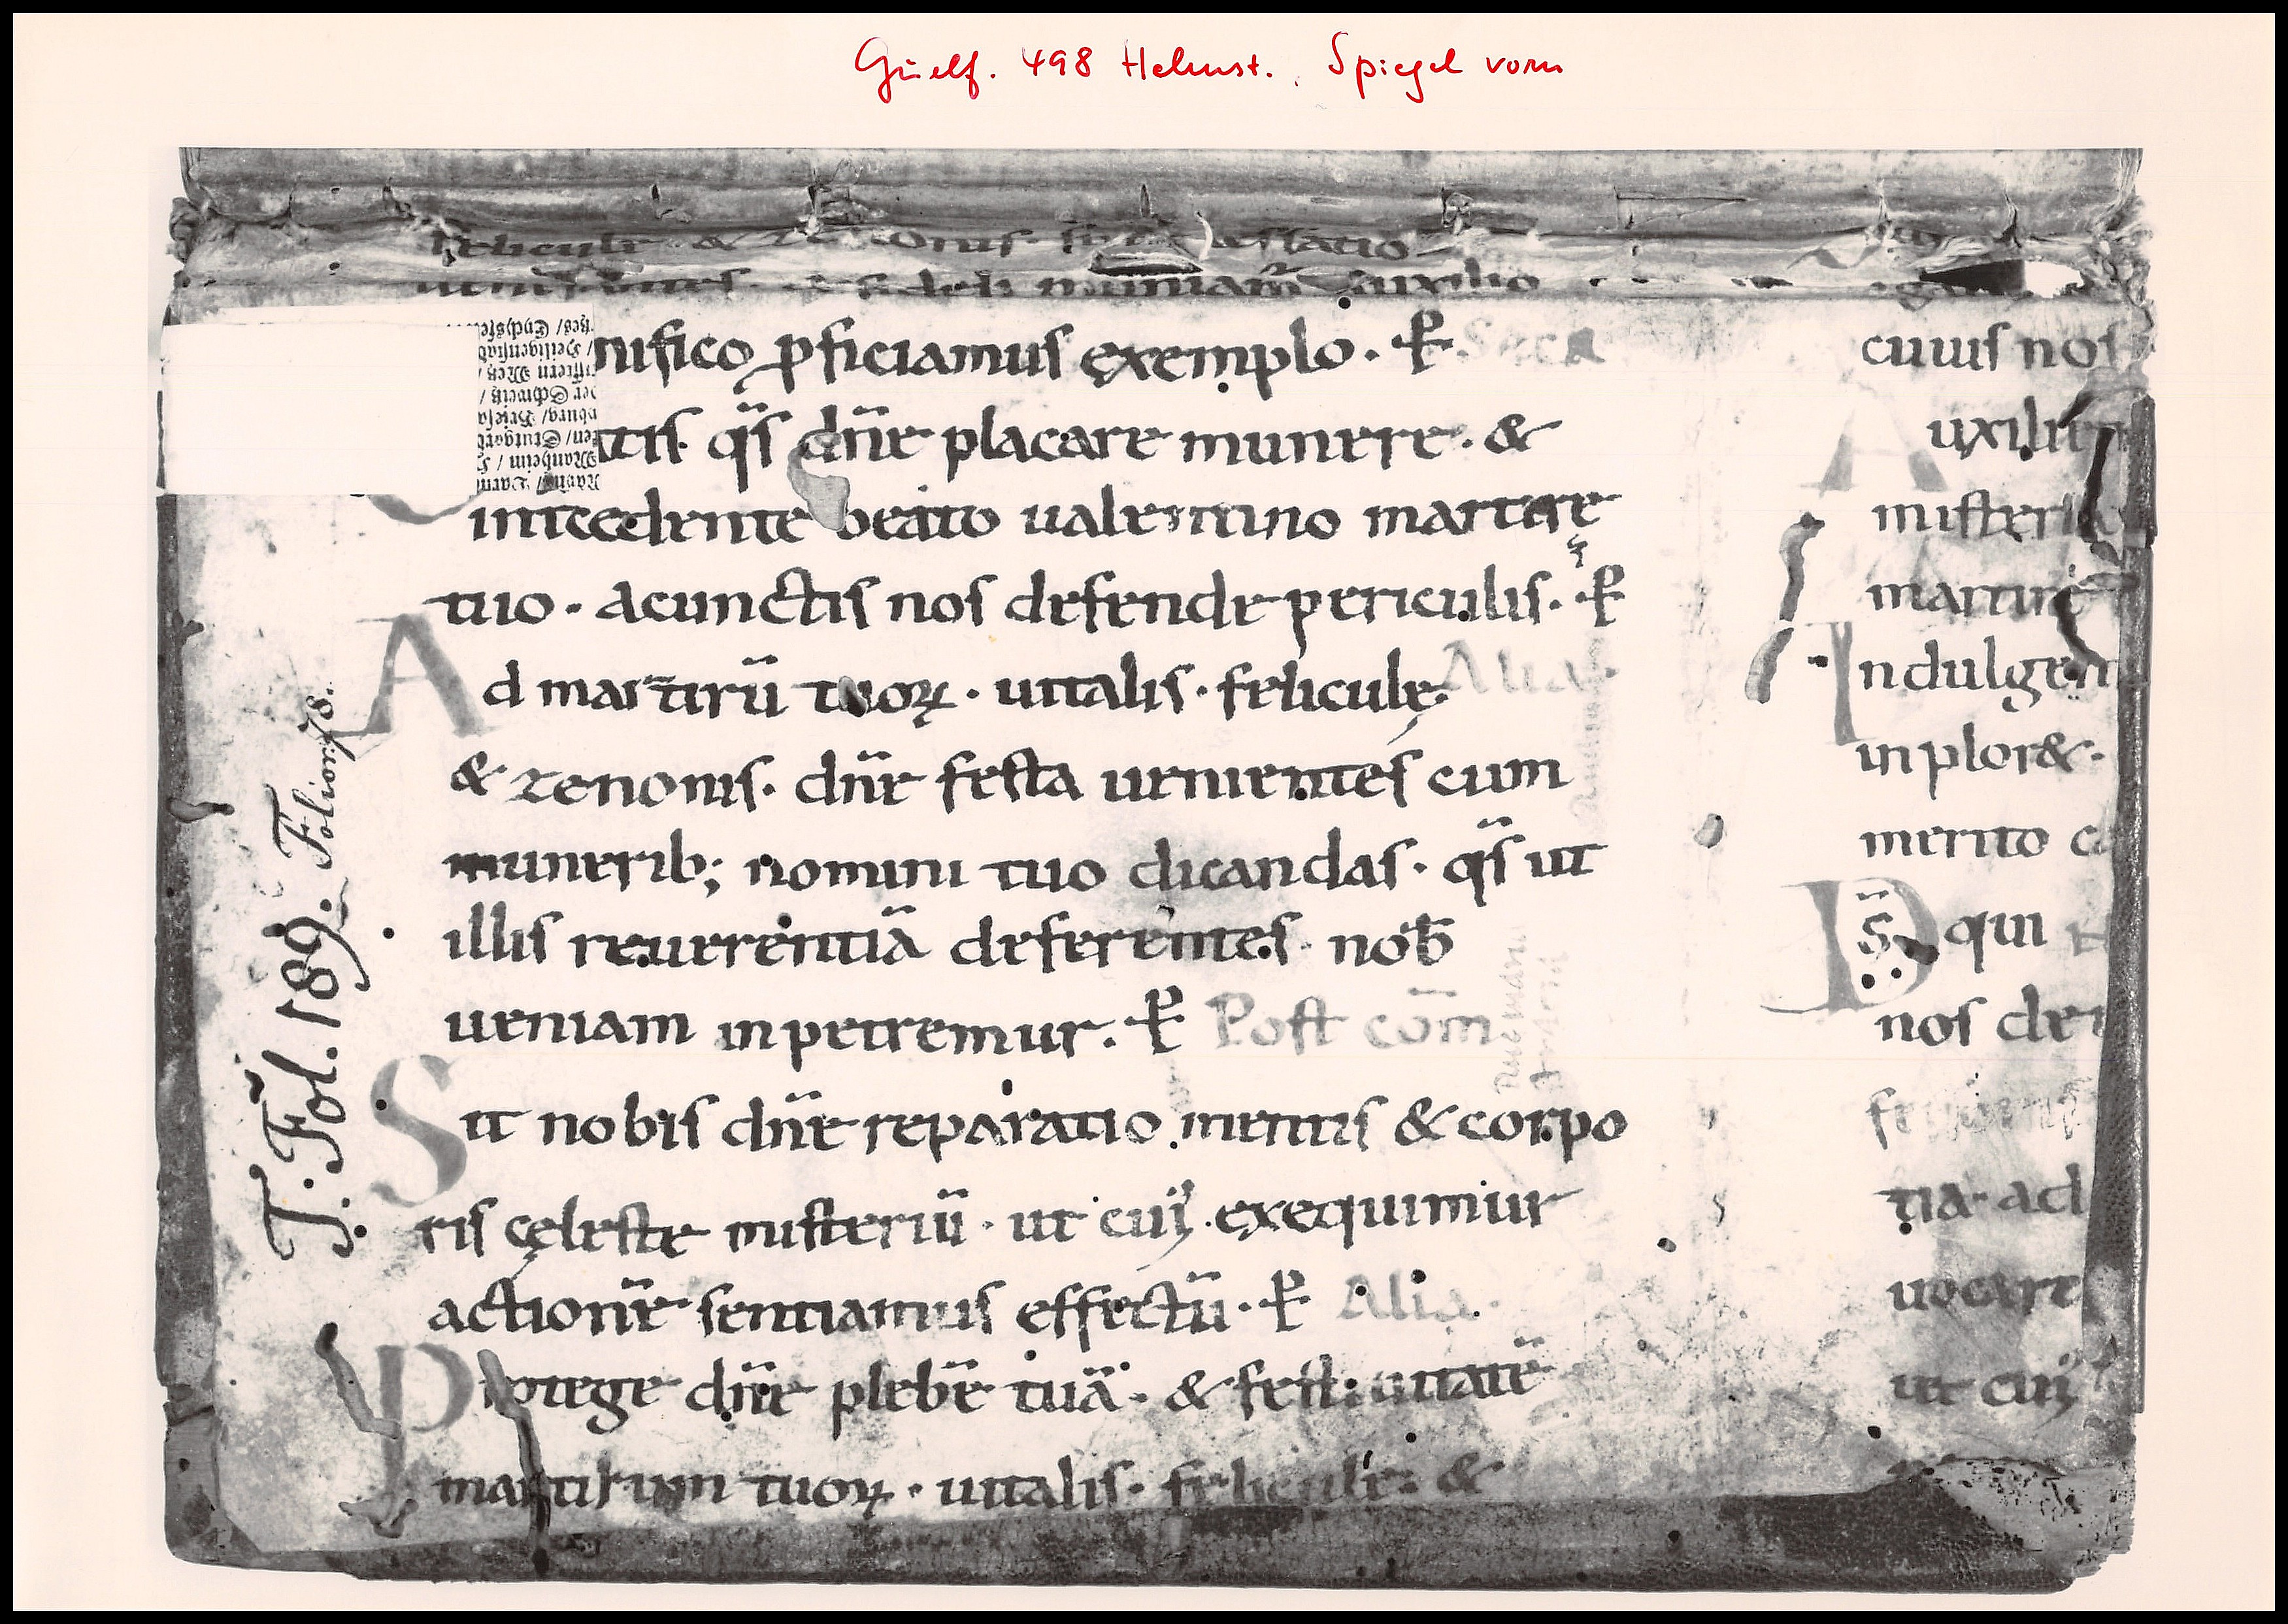 Guelf. 498 Helmst. Spiegel vorn
felicule & zenonis
uenerantes. & fideli muniant̄ auxilio
nifico ꝑficiamus exemplo. ꝑ Secr̄
tis. qs̄ dn̄e placare munere. &
int̄cedente beato ualentino martire
tuo. acunctis nos defende periculis. ꝑ
Ad martirū tuoꝝ. uitalis. feliculę. Alia.
& zenonis. dn̄e festa uenientes cum
munerib; nomini tuo dicandas. qs̄ ut
illis reuerentiā deferentes. nob̄
ueniam inpetremur. ꝑ Post com̄
Sit nobis dn̄e reparatio mentis & corpo
ris cęleste misteriū. ut cui᷒ exequimiur
actionē sentiamus effectū. ꝑ Alia.
Protege dn̄e plebē tuā. & festiuitatē
martirum tuoꝝ. uitalis. felicule. &
cuius nos
Auxilie
misteria
martire
Indulgen
inplor&.
merito
Ds̄ qui
nos de
tia. ad
uocare
ut cui᷒
T. Fol. 189. Folior. 78.